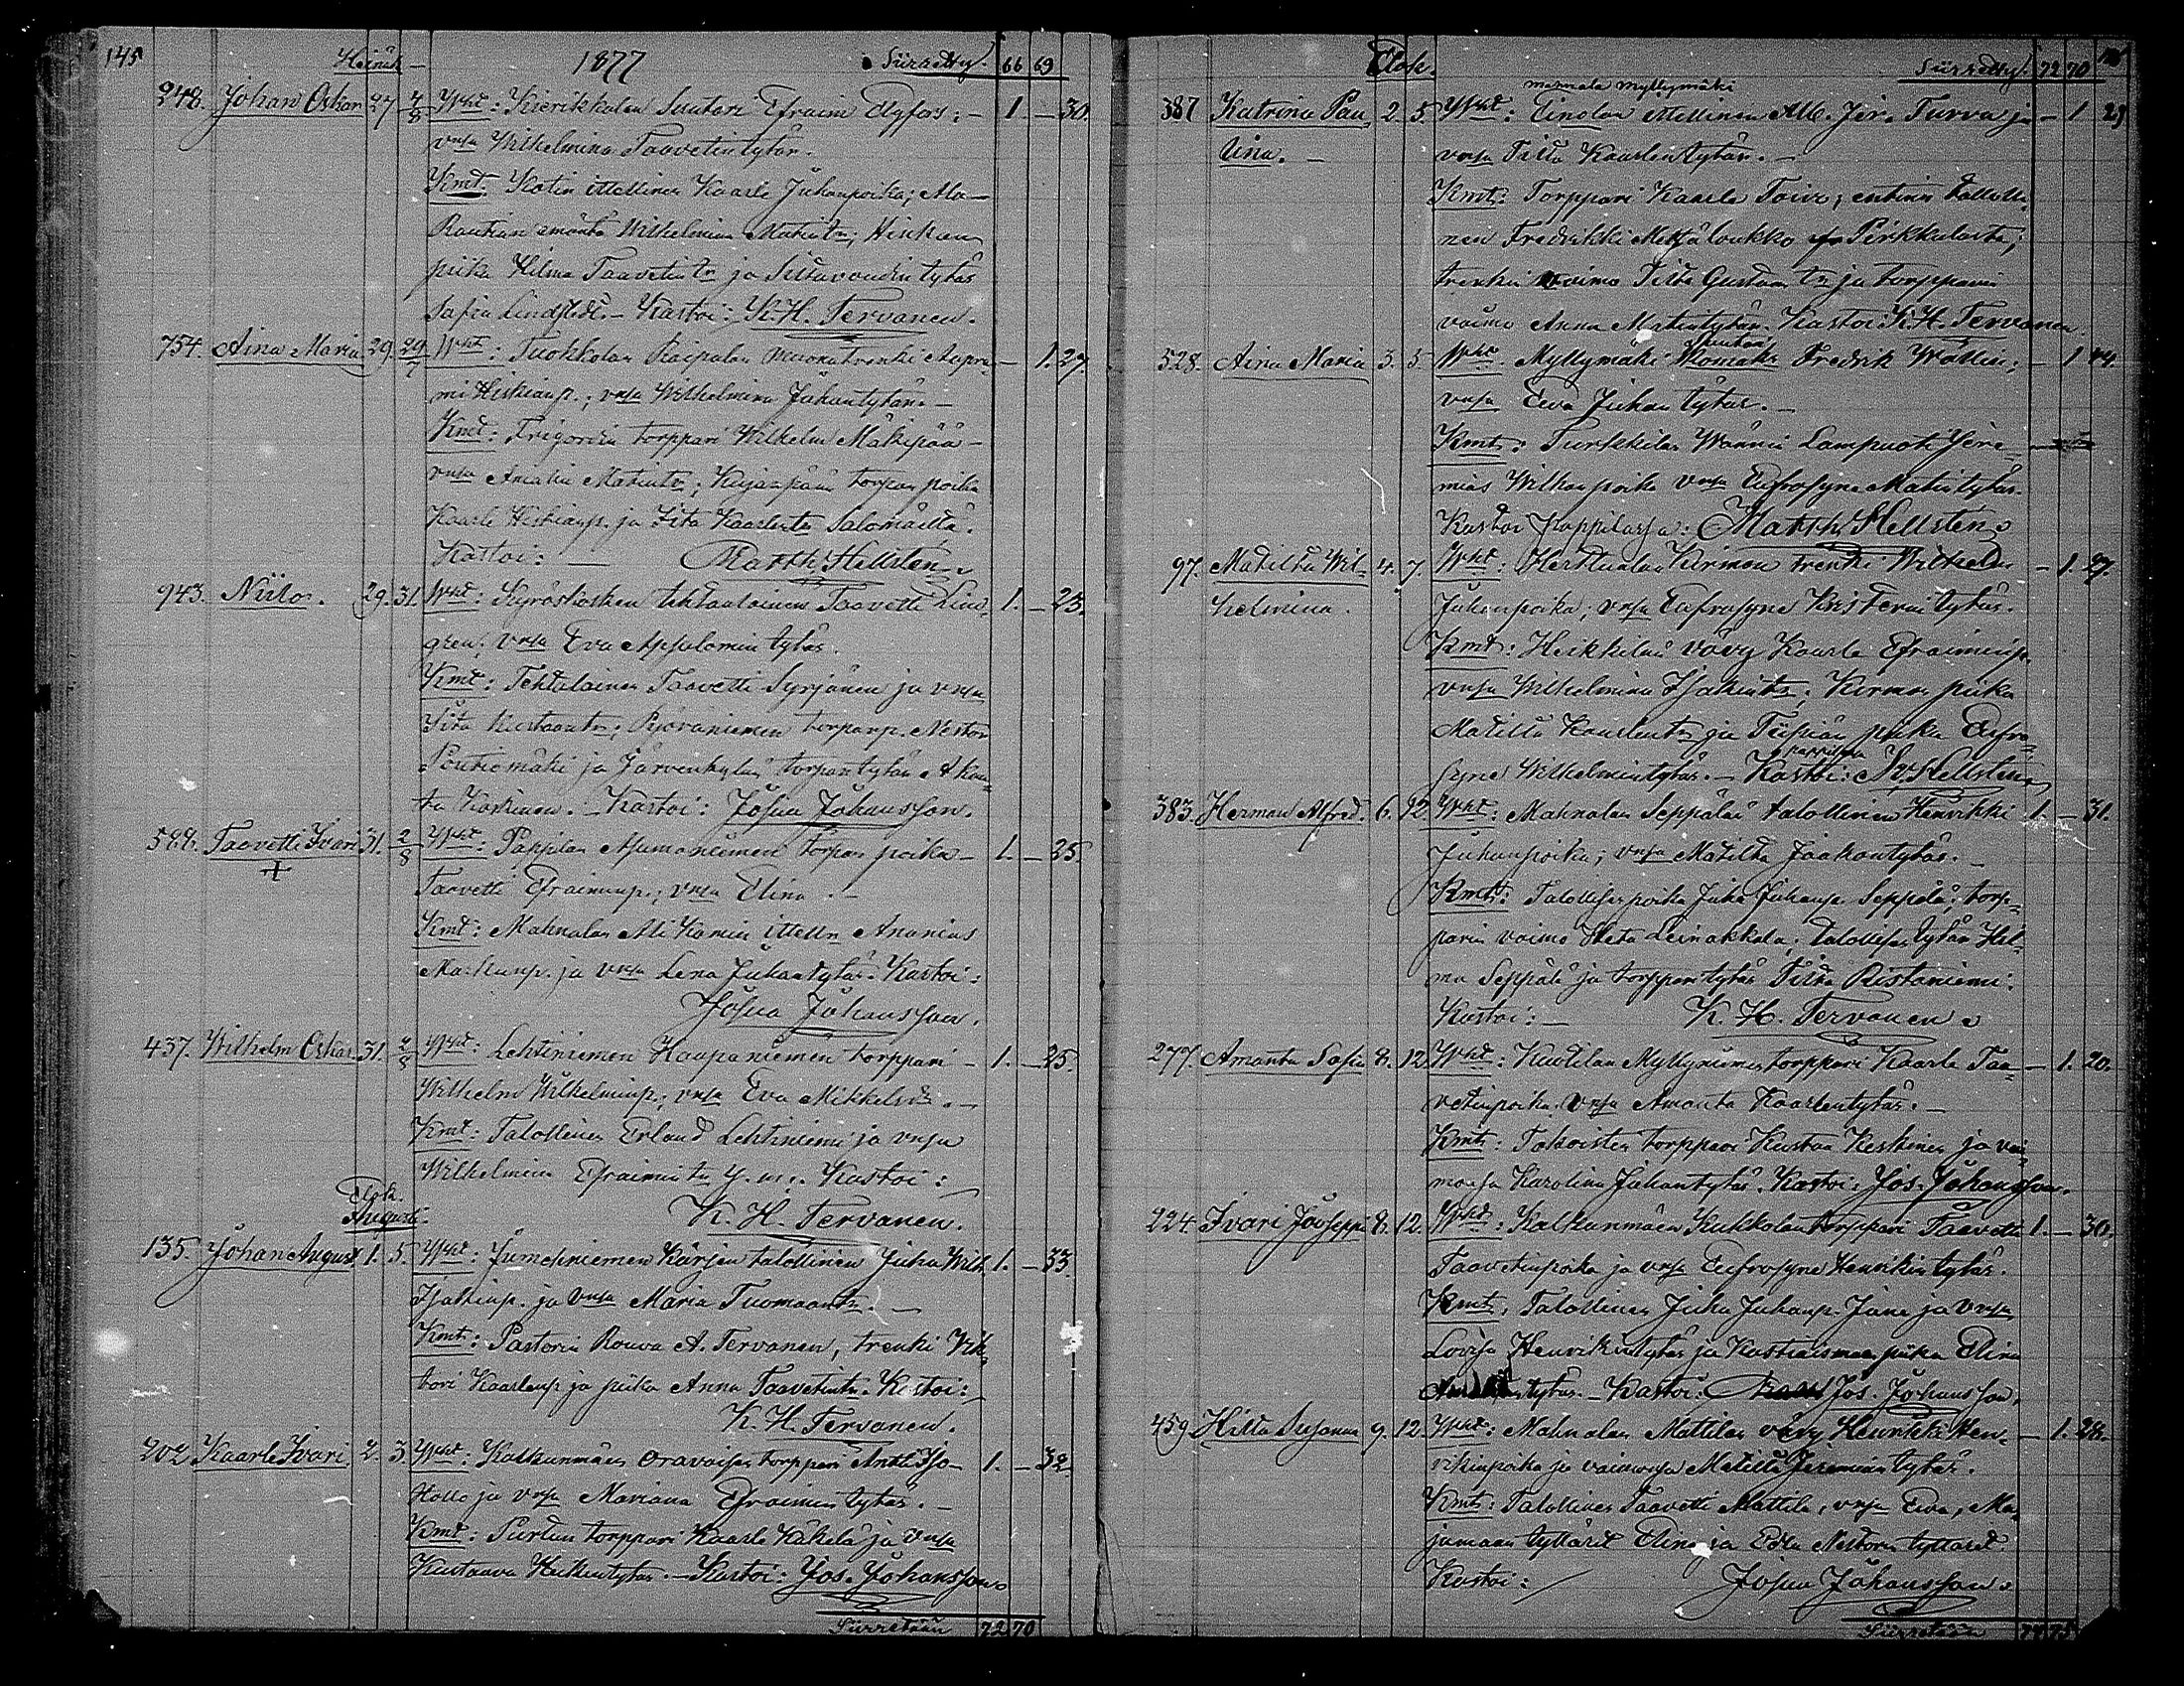 145 Heinäk. 1877 Siirretty. 66 69
248. Johan Oskar 27 4/8 Wht: Kierikkalan Suutari Efraim Elgfors; 1. — 30.
vnsa Wilhelmina Taavetintytär.
Kmt: Kotin ittellinen Kaarle Juhanpoika; Ala-
Rautian emäntä Wilhelmina Matintr; Hinkan
piika Hilma Taavetintr ja Siltavoudin tytär
Sofia Lindstedt. — Kastoi: K. H. Tervonen.
754. Aina Maria 29. 29/7 Wht: Tuokkolan Raipalan muonatrenki Aapra- — 1. 27.
mi Hiskianp.; vnsa Wilhelmina Juhantytär. —
Kmt: torppari Wilhelm Mäkipää —
vnsa Amalia Matintr; Kujanpään torpan poika
Kaarle Hiskianp. ja Fita Kaarlentr Salomäeltä.
Kastoi: — Matth. Hellsten.
943. Niilo. 29. 31. Wht: Kyröskosken tehtaalainen Taavetti Lin- 1. — 23.
gren; vnsa Eva Apsalomin tytär.
Kmt: Tehtalainen Taavetti Syrjänen ja vnsa
Fita Kustaantr; torparip. Nestor
Poutiomäki ja Järvenkylän torparitytär Aman-
ta Koskinen. — Kastoi: Josua Johansson.
588. Taavetti Ivari 31. 2/8 Wht: Pappilan Asumaniemen torpan poika — 1. — 25.
Taavetti Efraiminp.; vnsa Elina. —
Kmt: Mahnalan Ali Komin ittelln Ananias
Markunp. ja vnsa Lena Juhantytär. Kastoi:
Josua Johansson.
437. Wilhelm Oskar. 31. 2/8 Wht: Lehtiniemen Haapaniemen torppari — 1. — 25.
Wilhelm Wilhelminp.; vnsa Eva Mikkelintr. —
Kmt: Talollinen Erland Lehtiniemi ja vnsa
Wilhelmina Efraimintr y. m. Kastoi:
K. H. Tervonen.
Elok.
Augusti.
135. Johan August. 1. 5. Wht: Jumesniemen Kärjen talollinen Juha Wilh. 1. — 33.
Isakinp. ja vnsa Maria Tuomaantr. —
Kmt: Pastorin Rouva A. Tervonen, trenki Vik-
tori Kaarlenp ja piika Anna Taavetintr. Kastoi:
K. H. Tervonen.
202 Kaarle Ivari 2. 3. Wht: Kalkunmäen Oravaisen torppari Antti Iso- 1. — 32
Hollo ja vnsa Mariana Efraimin tytär. —
Kmt: torppari Kaarle Käkelä ja vnsa
Kustaava Heikintytär. — Kastoi: Jos. Johansson.
Siirretään 72 70
Elok. Siirretty. 72 70
Mannala Myllymäki
387 Katrina Pau- 2. 5. Wht: Einolan ittellinen Alb. Jer. Turva ja — 1 29
liina. — vnsa Fiita Kaarlentytär. —
Kmt: Torppari Kaarle Toivo; entinen talolli-
nen Fredrikki Metsäloukko Pirkkalasta;
trenkin vaimo Fiita Gustavtr ja torpparin
vaimo Anna Matintytär. Kastoi: K. H. Tervonen.
528. Aina Maria 3. 5. Wht. Myllymäki suutari Fredrik Wallin; — 1 44.
vnsa Eeva Juhantytär. —
Kmt: Turkkilan Wännin Lampuoti Jere-
mias Wilhanpoika vnsa Eufrosyne Matintytär.
Kastoi pappilassa: Matth. Hellsten.
97. Matilta Wil- 4. 7. Wht: Herttualan Kirmon trenki Wilhelm — 1. 27.
helmina. Juhanpoika; vnsa Eufrosyne Kristerin tytär.
Kmt: Heikkilän vävy Kaarle Efraiminp.
vnsa Wilhelmina Isakintr; Kirmon piika
Matilta Kaarlentr ja piika Eufro-
pappilassa
syne Wilhelmintytär. — Kastoi: M. Hellsten.
383. Herman Alfred. 6. 12. Wht: Mahnalan Seppälän talollinen Henrikki 1. — 31.
Juhanpoika; vnsa Matilta Jaakontytär. —
Kmt: Talollisen poika Juha Juhanp. Seppälä; torp-
parin vaimo Heta Leinakkala; talollisen tytär Hil-
ma Seppälä ja torpparitytär Fiita Ristaniemi:
Kastoi: — K. H. Tervonen.
277. Amanta Sofia 8. 12. Wht: Kuotilan Myllyniemen torppari Kaarle Taa- — 1. 20.
vetinpoika. vnsa Amanta Kaarlentytär. —
Kmt: torppari Kustaa Keskinen ja vai-
monsa Karolina Juhantytär. Kastoi: Jos. Johansson.
224. Ivari Jooseppi 8. 12. Wht: Kalkunmäen Kukkolan torppari Taavetti 1. — 30.
Taavetinpoika ja vnsa Eufrosyne Henrikintytär.
Kmt: Talollinen Juha Juhanp. Jana ja vnsa
Lovisa Henrikintytär ja piika Elina
tytär. — Kastoi: Jos. Johansson.
459 Hilta Susanna 9. 12. Wht: Mahnalan Mattilan vävy Henrikki Hen- — 1. 28.
rikinpoika ja vaimonsa Matilta Jeremian tytär.
Kmt: Talollinen Taavetti Mattila, vnsa Eva, Ma-
jamaan tyttäret Elina ja Edla Nestorin tyttäret.
Kastoi: Josua Johansson.
Siirretään 74 75